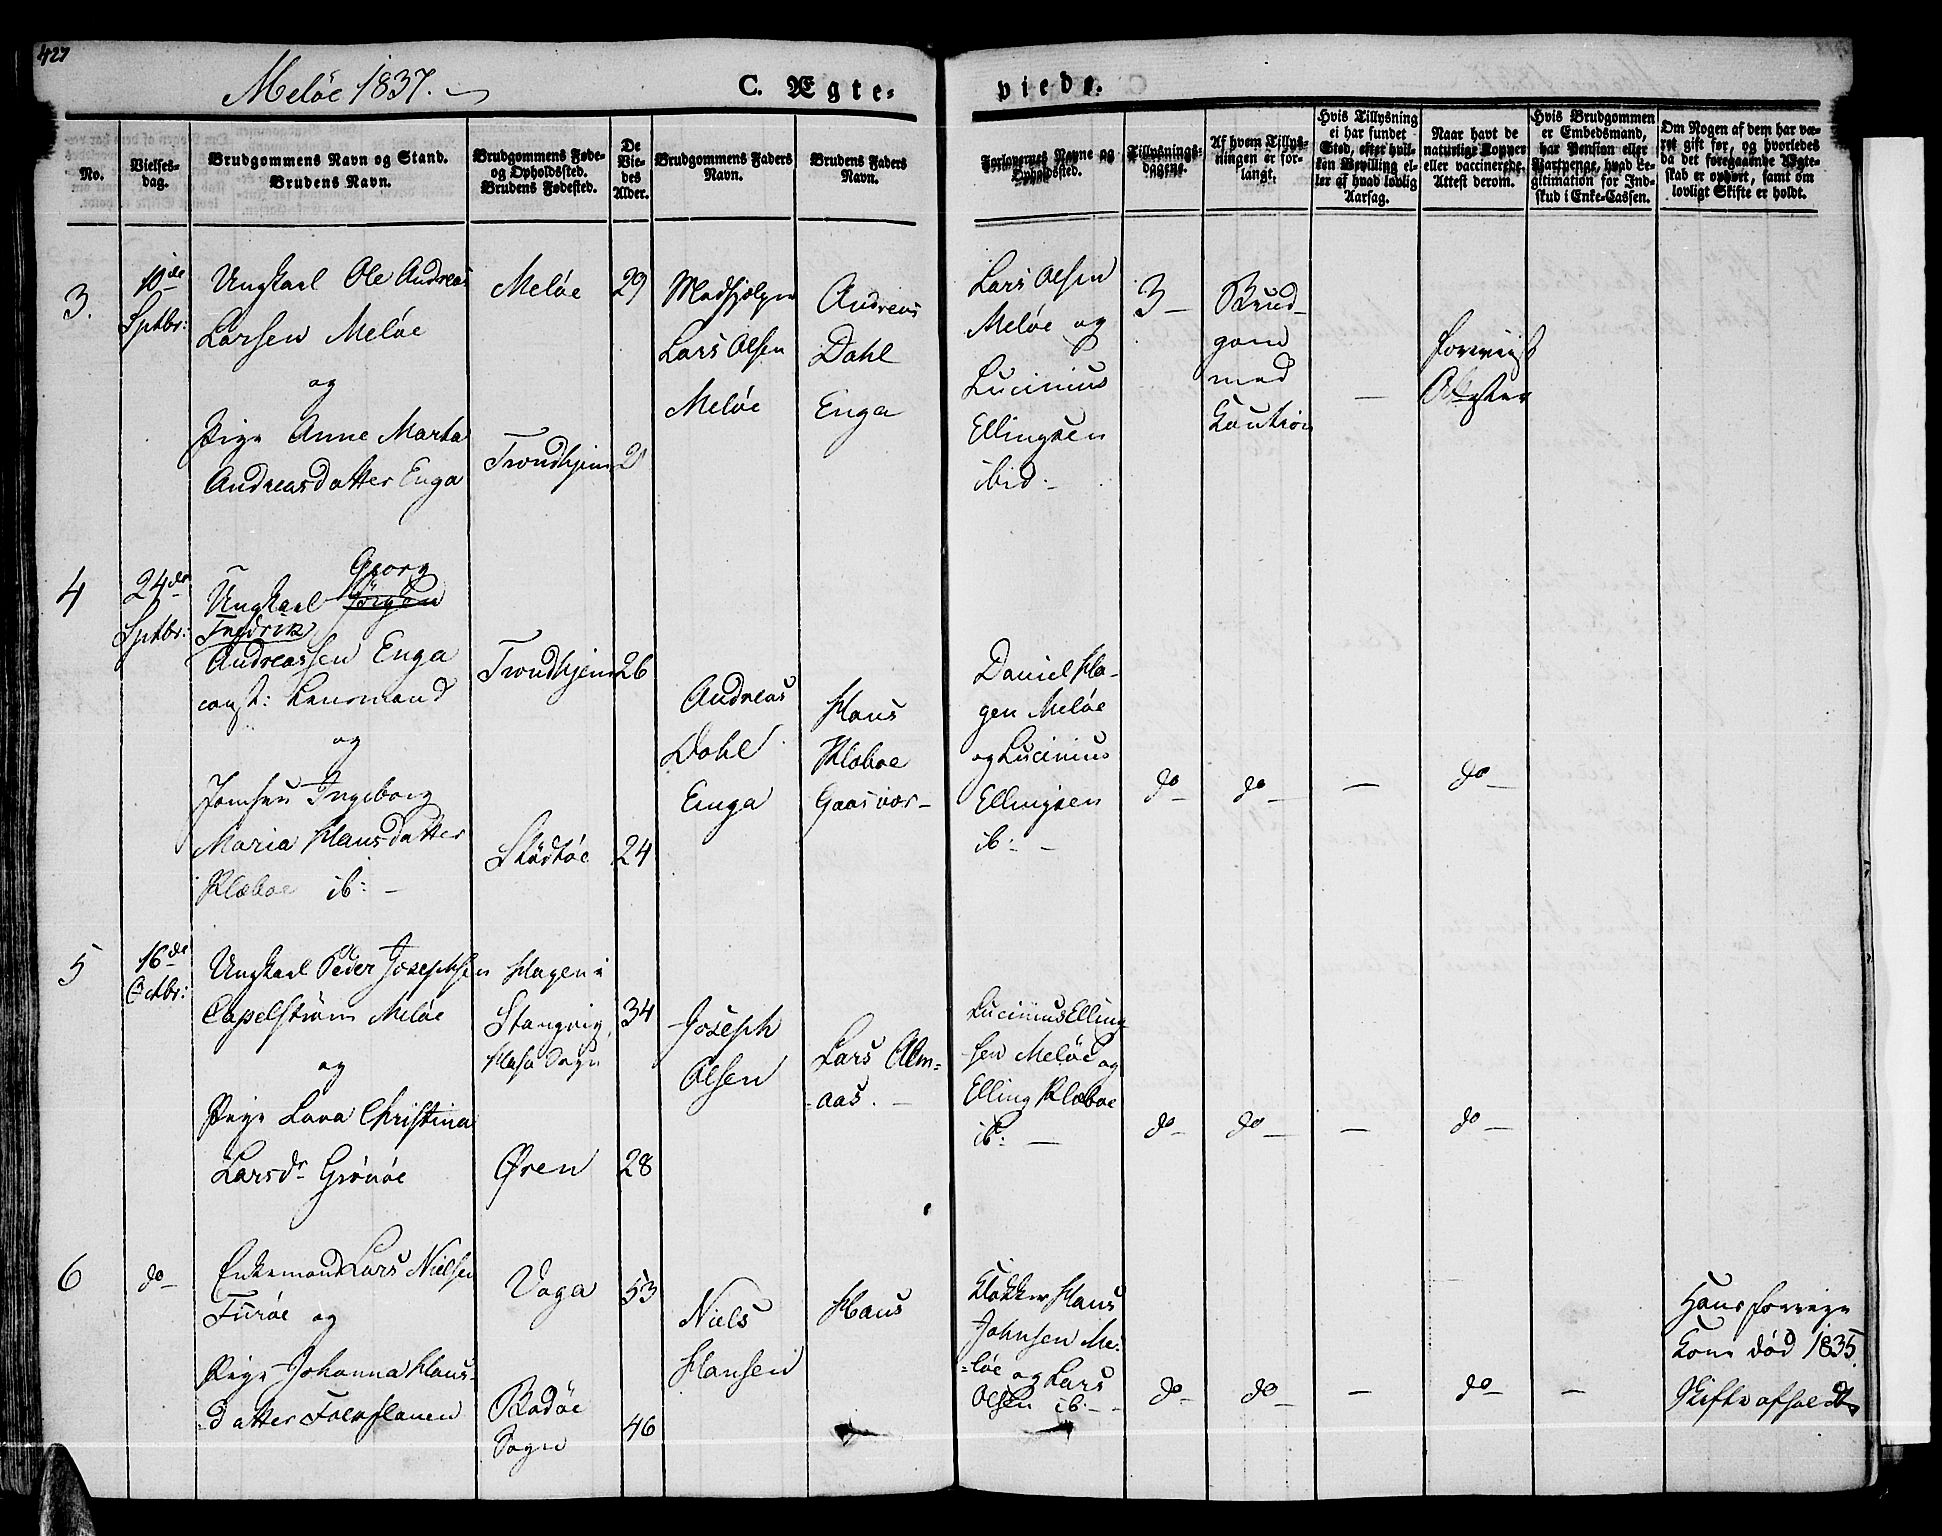 427
Meløe 1837.
C. Ægte-
viede.
No.
Vielses-
dag.
Brudgommens Navn og Stand.
Brudens Navn.
Brudgommens Føde-
og Opholdssted.
Brudens Fødested.
De
Vie-
des
Alder.
Brudgommens Faders
Navn.
Brudens Faders
Navn.
Forlovernes Navne og
Opholdssted.
Tillysnings-
dagene.
Af hvem Tillys-
ningen er for-
langt.
Hvis Tillysning
ei har fundet
Sted, efter hvil-
ken Bevilling el-
ler af hvad lovlig
Aarsag.
Naar havt de
naturlige Kopper
eller vaccinerede.
Attest derom.
Hvis Brudgommen
er Embedsmand,
har Pension eller
Vartpenge, hvad Le-
gitimation for Ind-
skud i Enke-Cassen.
Om Nogen af dem har væ-
ret gift før, og hvorledes
da det foregaaende Ægte-
skab er ophørt, samt om
lovligt Skifte er holdt.
3.
10de
Sptbr:
Ungkarl Ole Andreas
Larsen Meløe
og
Pige Anne Marta
Andreasdatter Enga
Meløe
Trondhjem
29
2
Lars Olsen
Meløe
Andreas
Dahl
Enga
Lars Olsen
Meløe og
Lucinius
Ellingsen
ibid.
3 —
Brud-
gom
med
Caution
—
forevist
Attester
4
24de
Sptbr:
Ungkarl Jörgen
Georg
Fredrik
Andreassen Enga
const: Lensmand
og
Jomfru Ingeborg
Maria Hansdatter
Klæboe ib: —
Trondhjem
Stødtøe
26
24
Andreas
Dahl
Enga
Hans
Klæboe
Gaasvær —
Daniel Ha-
gen Meløe
og Lucinius
Ellingsen
ib: —
do —
do —
—
do —
5
16de
Octbr:
Ungkarl Peder Josephsen
Capelstrøm Meløe
og
Pige Lava Christina
Larsdr Grønøe
Hagen i
Stangvig
Sogn
Øren
34
28
Joseph
Olsen
Lars Alm-
aas. —
Lucinius Elling
sen Meløe og
Elling Klæboe
ib: —
do —
do —
—
do —
6
do —
Enkemand Lars Nielsen
Furøe og
Pige Johanna Hans-
datter
Vaga
Bodøe
Sogn
53
46
Niels
Hansen
Hans
Klokker Hans
Johnsen Me-
løe og Lars
Olsen ib. —
do —
do —
—
do —
—
Hans forrige
Kone død 1835.
Skifte afholdt